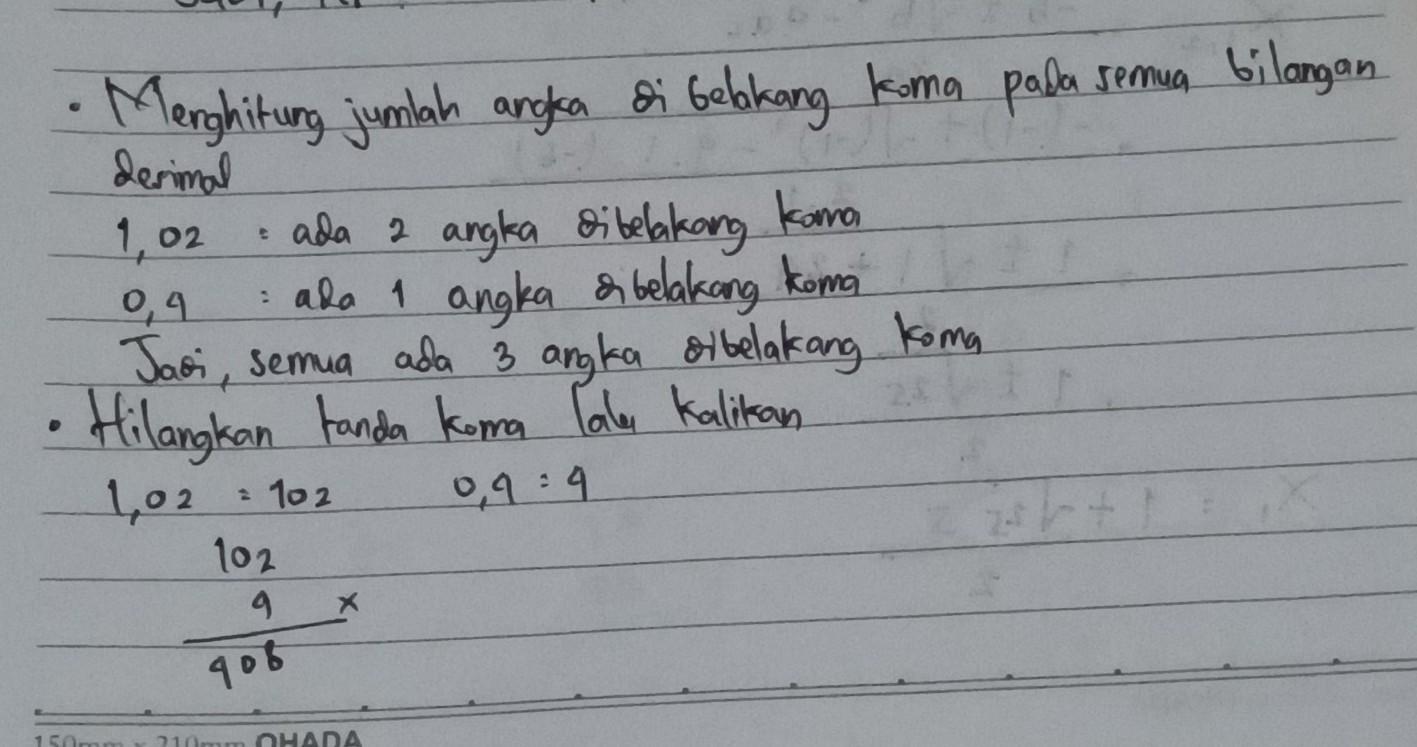 • Menghitung jumlah angka di belakang koma pada semua bilangan
desimal
1,02 : ada 2 angka dibelakang koma
0,4 : ada 1 angka dibelakang koma
Jadi, semua ada 3 angka dibelakang koma
• Hilangkan tanda koma lalu kalikan
1,02 = 102 0,4 = 4
102
4 x
408
150mm x 210mm OHADA